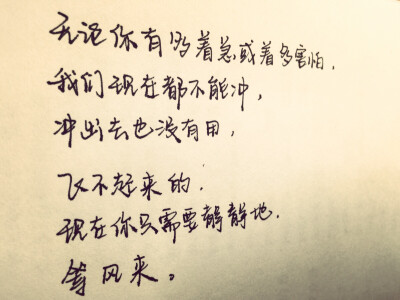 无论你有多着急或着多害怕，
我们现在都不能冲，
冲出去也没有用，
飞不起来的.
现在你只需要静静地.
等风来。